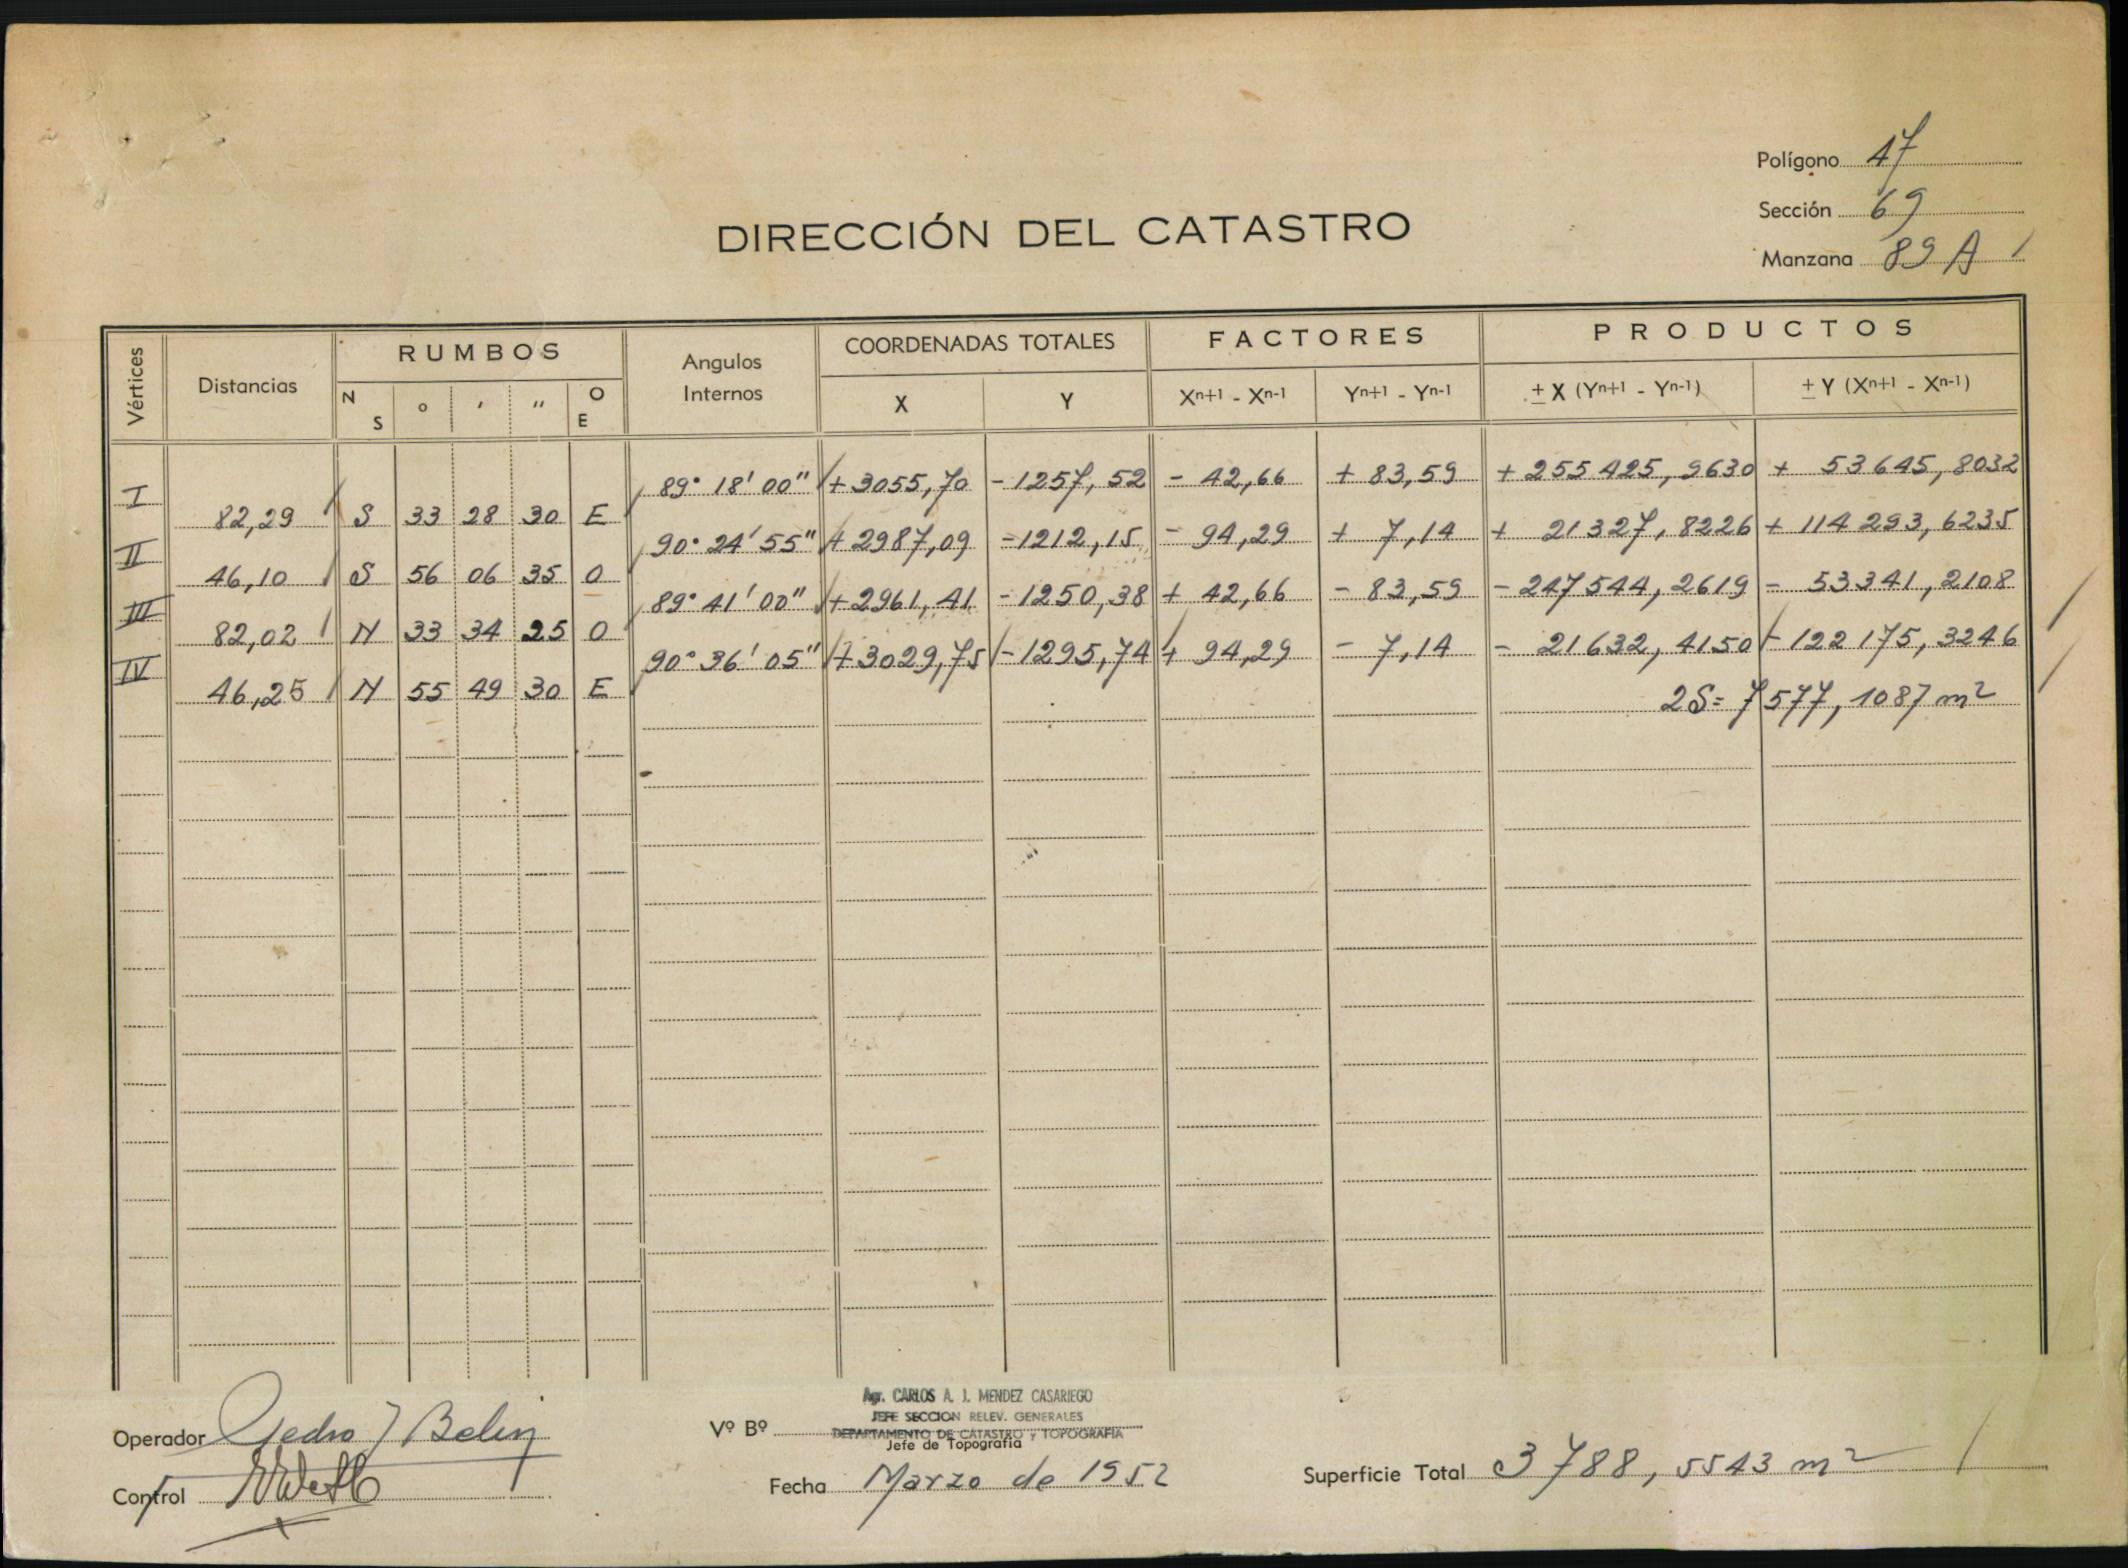 Polígono 47
Sección 69
Manzana 89 A
DIRECCIÓN DEL CATASTRO
Vértices Distancias RUMBOS Angulos Internos COORDENADAS TOTALES FACTORES PRODUCTOS
N S ° ′ ″ O E X Y Xⁿ⁺¹ - Xⁿ⁻¹ Yⁿ⁺¹ - Yⁿ⁻¹ ± X (Yⁿ⁺¹ - Yⁿ⁻¹) ± Y (Xⁿ⁺¹ - Xⁿ⁻¹)
I 89° 18' 00" +3055,70 -1257,52 - 42,66 + 83,59 +255425,9630 + 53645,8032
82,29 S 33 28 30 E
II 90° 24' 55" +2987,09 -1212,15 - 94,29 + 7,14 + 21327,8226 + 114293,6235
46,10 S 56 06 35 O
III 89° 41' 00" +2961,41 -1250,38 + 42,66 - 83,59 -247544,2619 - 53341,2108
82,02 N 33 34 25 O
IV 90° 36' 05" +3029,75 -1295,74 + 94,29 - 7,14 - 21632,4150 - 122175,3246
46,25 N 55 49 30 E
2S= 7577,1087 m²
Ag. CARLOS A. J. MENDEZ CASARIEGO
JEFE SECCION RELEV. GENERALES
DEPARTAMENTO DE CATASTRO y TOPOGRAFIA
Operador Pedro J Belin
Vº Bº
Jefe de Topografía
Control
Fecha Marzo de 1952
Superficie Total 3788,5543 m²